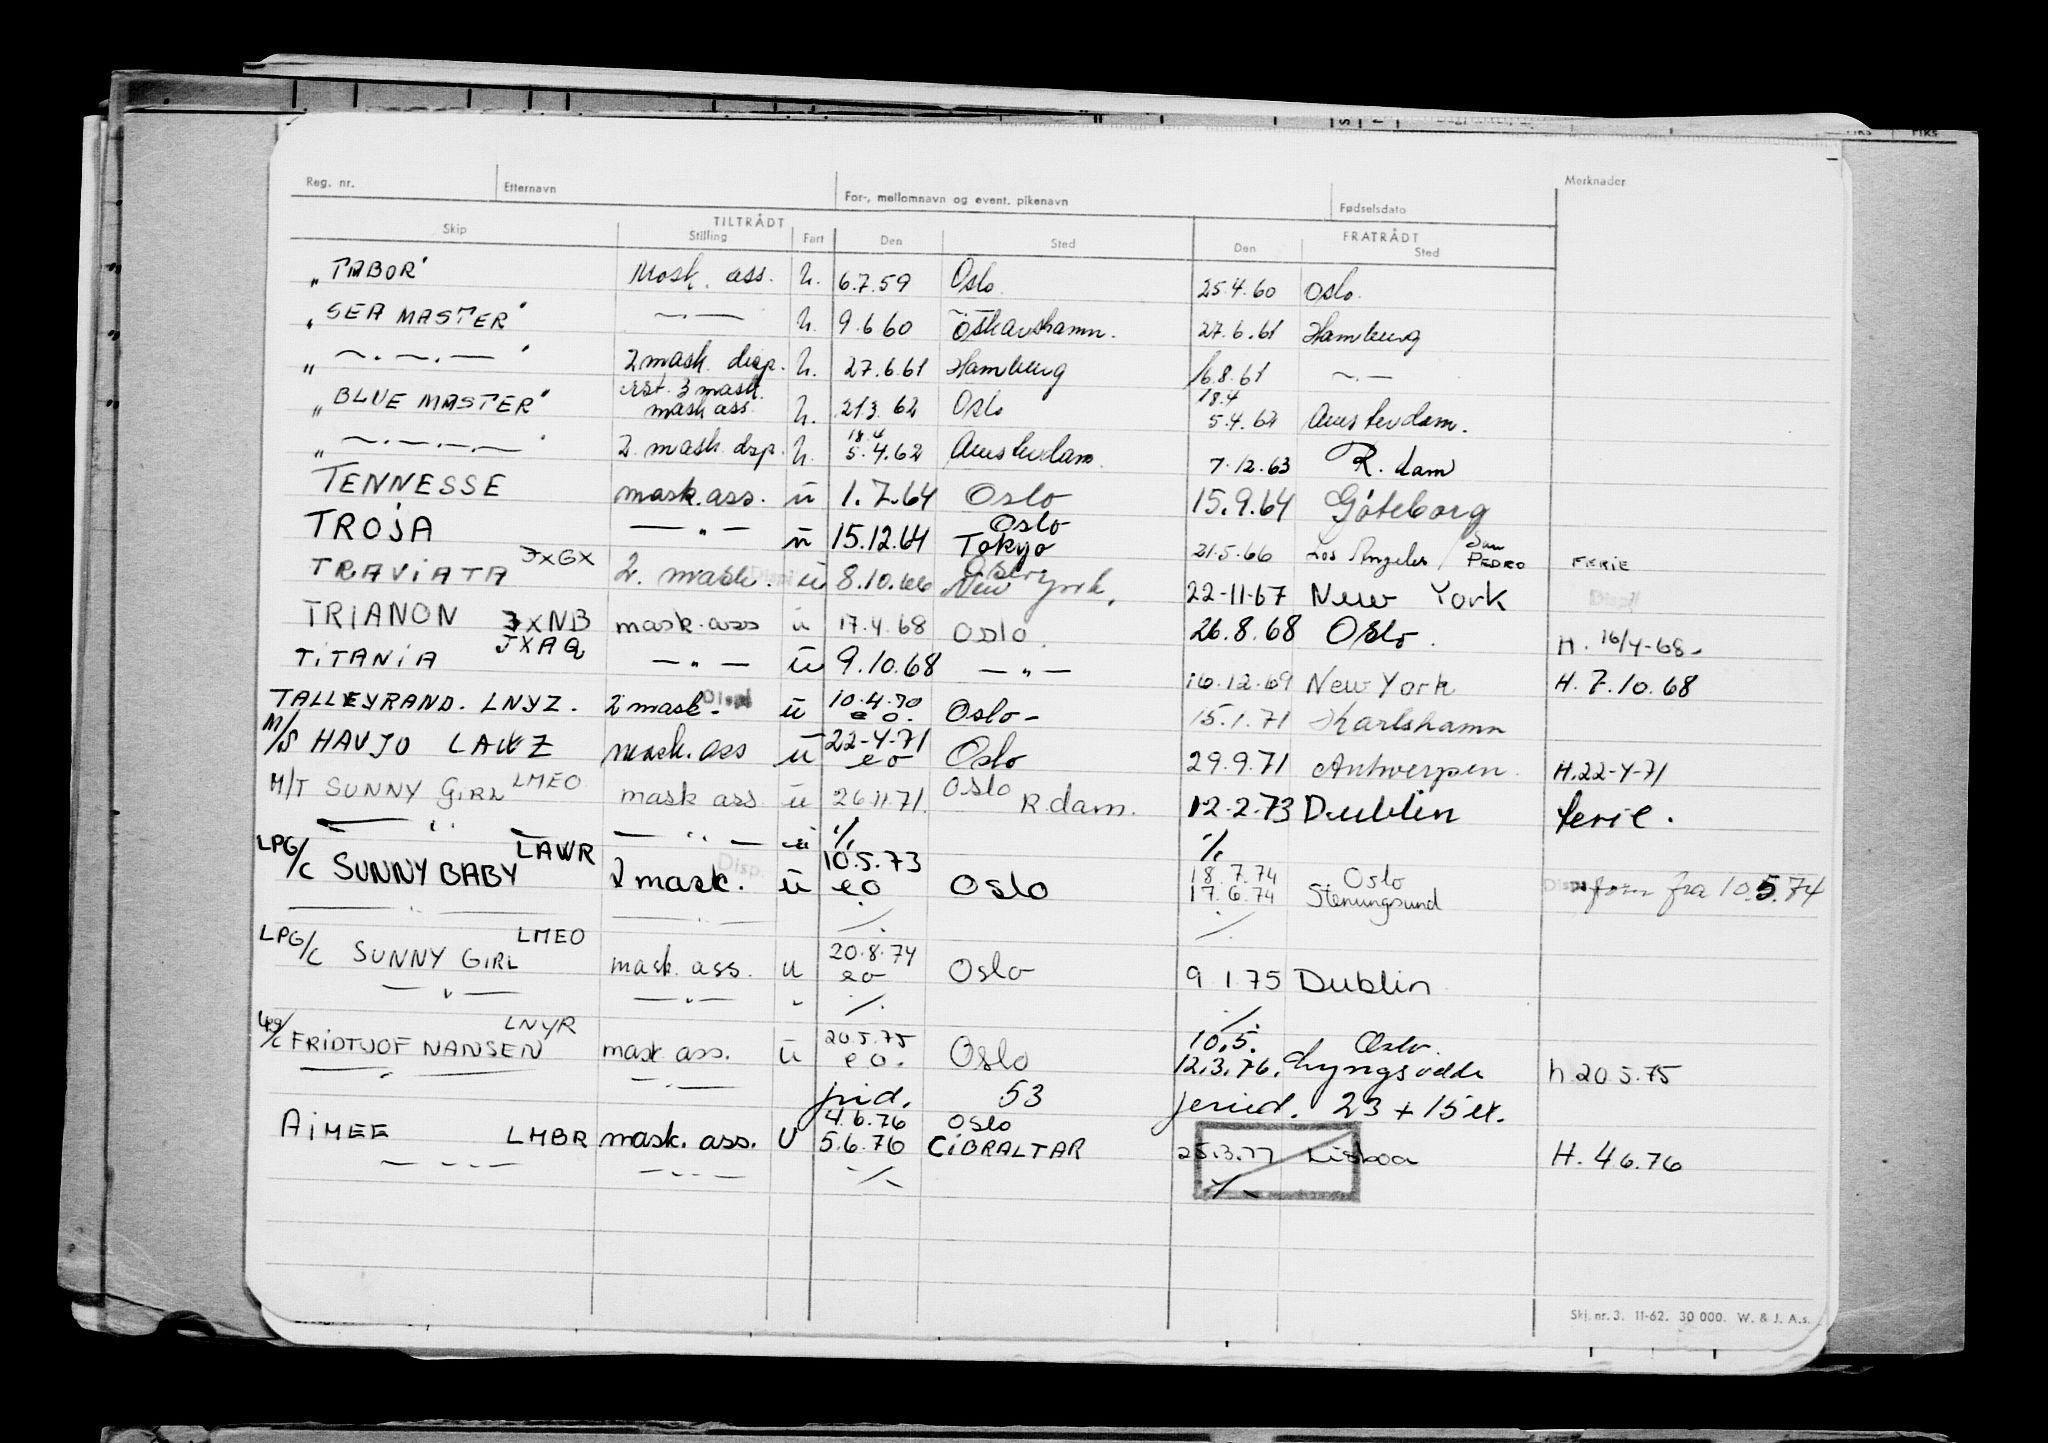 Reg. nr. Etternavn For-, mellomnavn og event. pikenavn Fødselsdato Merknader
TILTRÅDT FRATRÅDT
Skip Stilling Fart Den Sted Den Sted
"TABOR" Mask. ass. h. 6.7.59 Oslo 25.4.60 Oslo.
"SEA MASTER" —·— h. 9.6 60 Oskarshamn. 27.6.61 Hamburg
" —·—·— " 2 mask. disp. h. 27.6.61 Hamburg 16.8.61 —·—
"BLUE MASTER" asst. 3 mask. mask ass. h. 21 3. 62 Oslo 18.4 5.4.62 Amsterdam.
" —·—·—·— " 2. mask. dsp. h. 18.4 5.4.62 Amsterdam. 7.12.63 R. dam
TENNESSE mask. ass. u 1.7.64 Oslo 15.9.64 Göteborg
TROJA —"— u 15.12.64 Oslo Tokyo 21.5.66 Los Angeles / San PEDRO FERIE
TRAVIATA JXGX 2. mask. Disp u 8.10.66 Oslo New York. 22-11-67 New York Disp
TRIANON JXNB mask. ass u 17.4.68 Oslo. 26.8.68 Oslo. H. 16/4-68-
TITANIA JXAQ —"— u 9.10.68 —"— 16.12.69 New York H. 7.10.68
TALLEYRAND. LNYZ. 2 mask. Disp u 10.4.70 e o. Oslo- 15.1.71 Karlshamn
M/S HAVJO LAWZ mask. ass u 22-4-71 e o Oslo 29.9.71 Antwerpen. H.22-4-71
M/T SUNNY GIRL LMEO mask ass u 26.11.71. Oslo R.dam. 12-2-73 Dublin ferie.
—"— —"— u ·/. ·/.
LPG/C SUNNY BABY LAWR 2 mask. Disp. u 10.5.73 e o Oslo 18.7.74 Oslo
17.6.74 Stenungsund Disp fom fra 10.5.74
—"— —"— ·/. ·/.
LPG/C SUNNY GIRL LMEO mask. ass. u 20.8.74 e o Oslo 9 1.75 Dublin
—"— —"— " ·/. ·/.
LPG/C FRIDTJOF NANSEN LNYR mask ass. u 20.5.75 e o. Oslo 10.5. Oslo.
12.3.76. Lyngsodde h.20 5.75
—"— —"— frid. 53 feried. 23 + 15 ex.
AIMEE LMBR mask. ass. U 4.6.76 Oslo
5.6.76 GIBRALTAR 25.3.77 Lisboa H. 4 6.76
—"— —"— ·/. ·/.
Skj. nr. 3. 11-62. 30 000. W. & J. A.s.